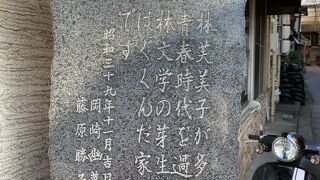 林芙美子が多
青春時代を過
林文学の芽生
はぐくんだ家
です
昭和三十九年十一月吉日
岡崎
藤原勝